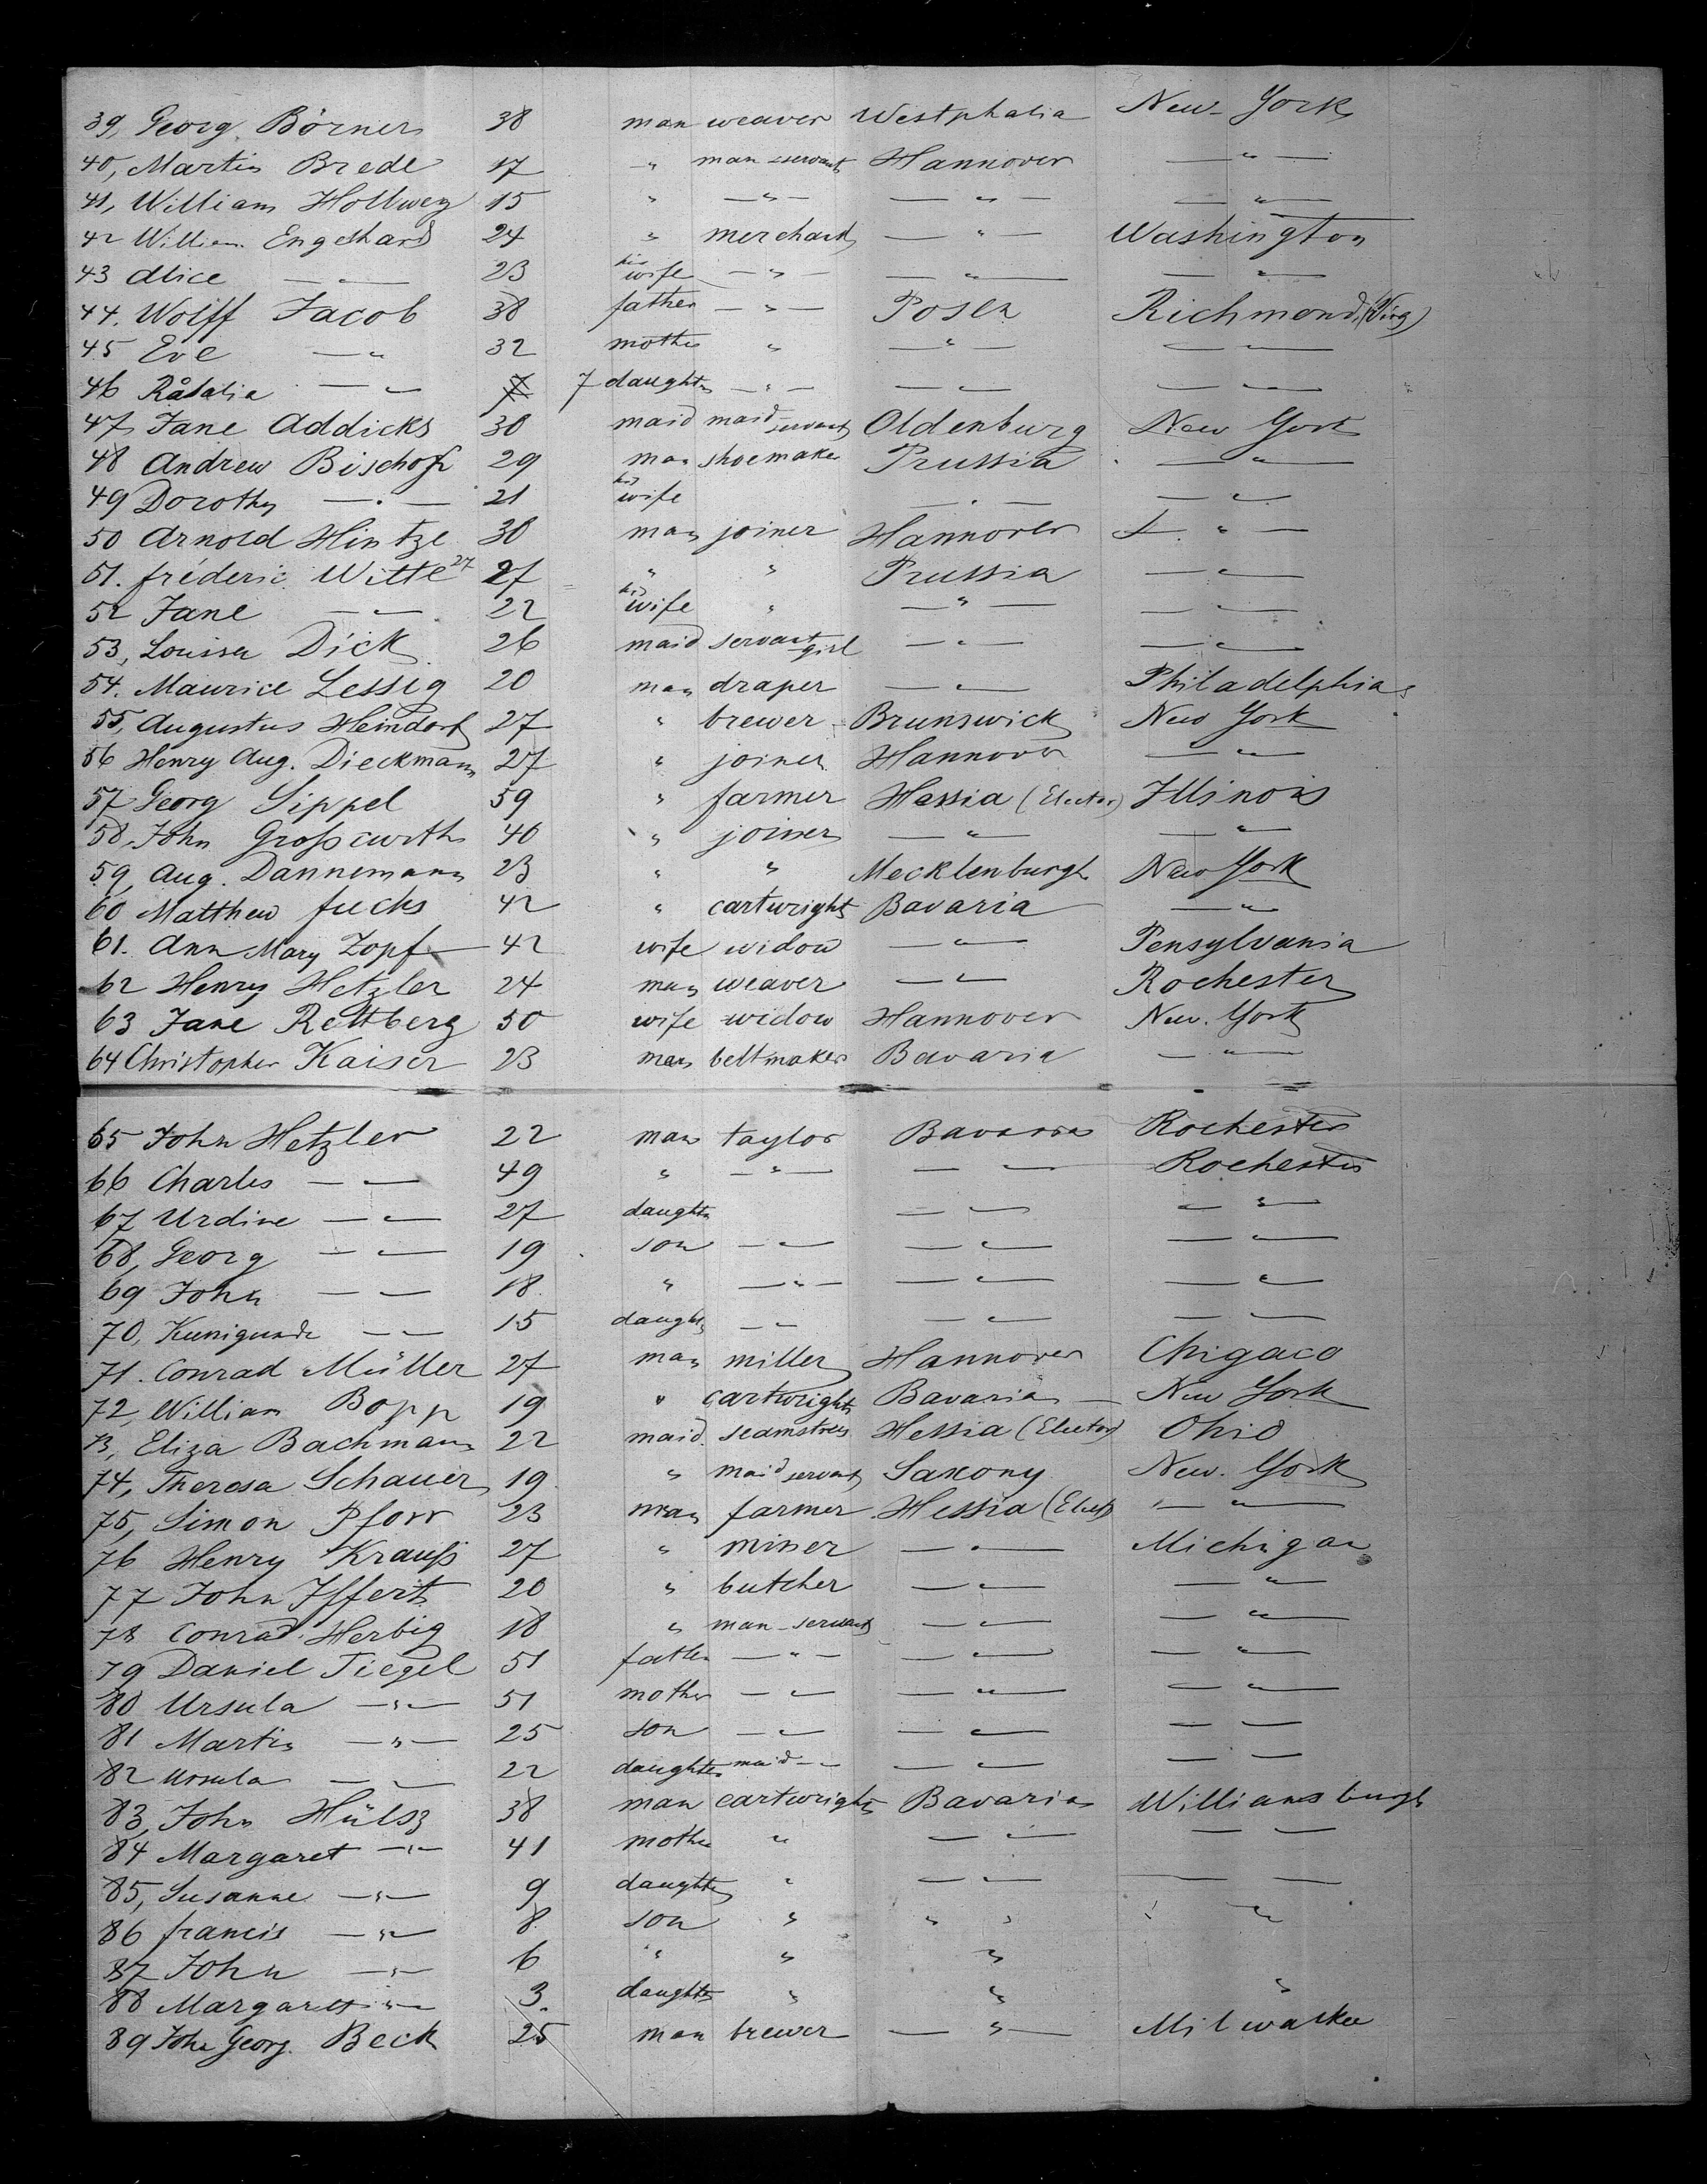 39, Georg Börner 38 man weaver Westphalia New-York
40, Martin Brede 17 " man-servant Hannover — " —
41, William Hollweg 15 " — " — — " — — " —
42 William Engelhard 24 " merchant — " — Washington
43 Alice — " — 23 his wife — " — — " — — " —
44. Wolff Jacob 38 father — " — Posen Richmond (Virg)
45 Eve — " 32 mother " — " — — " —
46 Rosalia — " 7 7 daughter — " — — " — — " —
47, Jane Addicks 30 maid maid servant Oldenburg New York
48 Andrew Bischoff 29 man shoemaker Prussia — " —
49 Dorothy — " — 21 his wife — " — — " —
50 Arnold Hintze 30 man joiner Hannover — " —
51. fréderic Witte 27 27 " " Prussia — " —
52 Jane — " — 22 his wife " — " — — " —
53, Louisa Dick 26 maid servant girl — " — — " —
54. Maurice Lessig 20 man draper — " — Philadelphia
55, Augustus Heindorf 27 " brewer Brunswick New York
56 Henry Aug. Dieckmann 27 " joiner Hannover — " —
57 Georg Sippel 59 " farmer Hessia (Elector) Illinois
58, John Großcurth 40 " joiner — " — — " —
59, Aug. Dannemann 23 " " Mecklenburgh New York
60 Matthew fuchs 42 " cartwright Bavaria — " —
61. Ann Mary Zopf 42 wife widow — " — Pensylvania
62 Henry Hetzler 24 man weaver — " — Rochester
63 Jane Rettberg 50 wife widow Hannover New-York
64 Christopher Kaiser 23 man beltmaker Bavaria — " —
65 John Hetzler 22 man taylor Bavaria Rochester
66 Charles — " — 49 " — " — — " — Rochester
67 Urdine — " — 27 daughter — " — — " —
68, Georg — " — 19 son — " — — " — — " —
69 John — " — 18 " — " — — " — — " —
70, Kunigunde — " — 15 daughter — " — — " — — " —
71. Conrad Müller 27 man miller Hannover Chigaco
72, William Bopp 19 " cartwright Bavaria New York
73, Eliza Bachmann 22 maid seamstress Hessia (Elector) Ohio
74, Theresa Schauer 19 " maid servant Saxony New-York
75, Simon Pforr 23 man farmer Hessia (Elect) — " —
76 Henry Krauß 27 " miner — " — Michigan
77 John Iffert 20 " butcher — " — — " —
78 Conrad Herbig 18 " man-servant — " — — " —
79 Daniel Tiegel 51 father — " — — " — — " —
80 Ursula — " — 51 mother — " — — " — — " —
81 Martin — " — 25 son — " — — " — — " —
82 Ursula — " — 22 daughter maid — " — " — — " —
83, John Hülsz 38 man cartwright Bavaria Williamsburgh
84 Margaret — " — 41 mother " — " — — " —
85, Susanne — " — 9 daughter " — " — — " —
86 francis — " — 8 son " " " "
87 John — " — 6 " " "
88 Margarett — " — 3. daughter " " "
89 John Georg. Beck 25 man brewer — " — Milwaukee